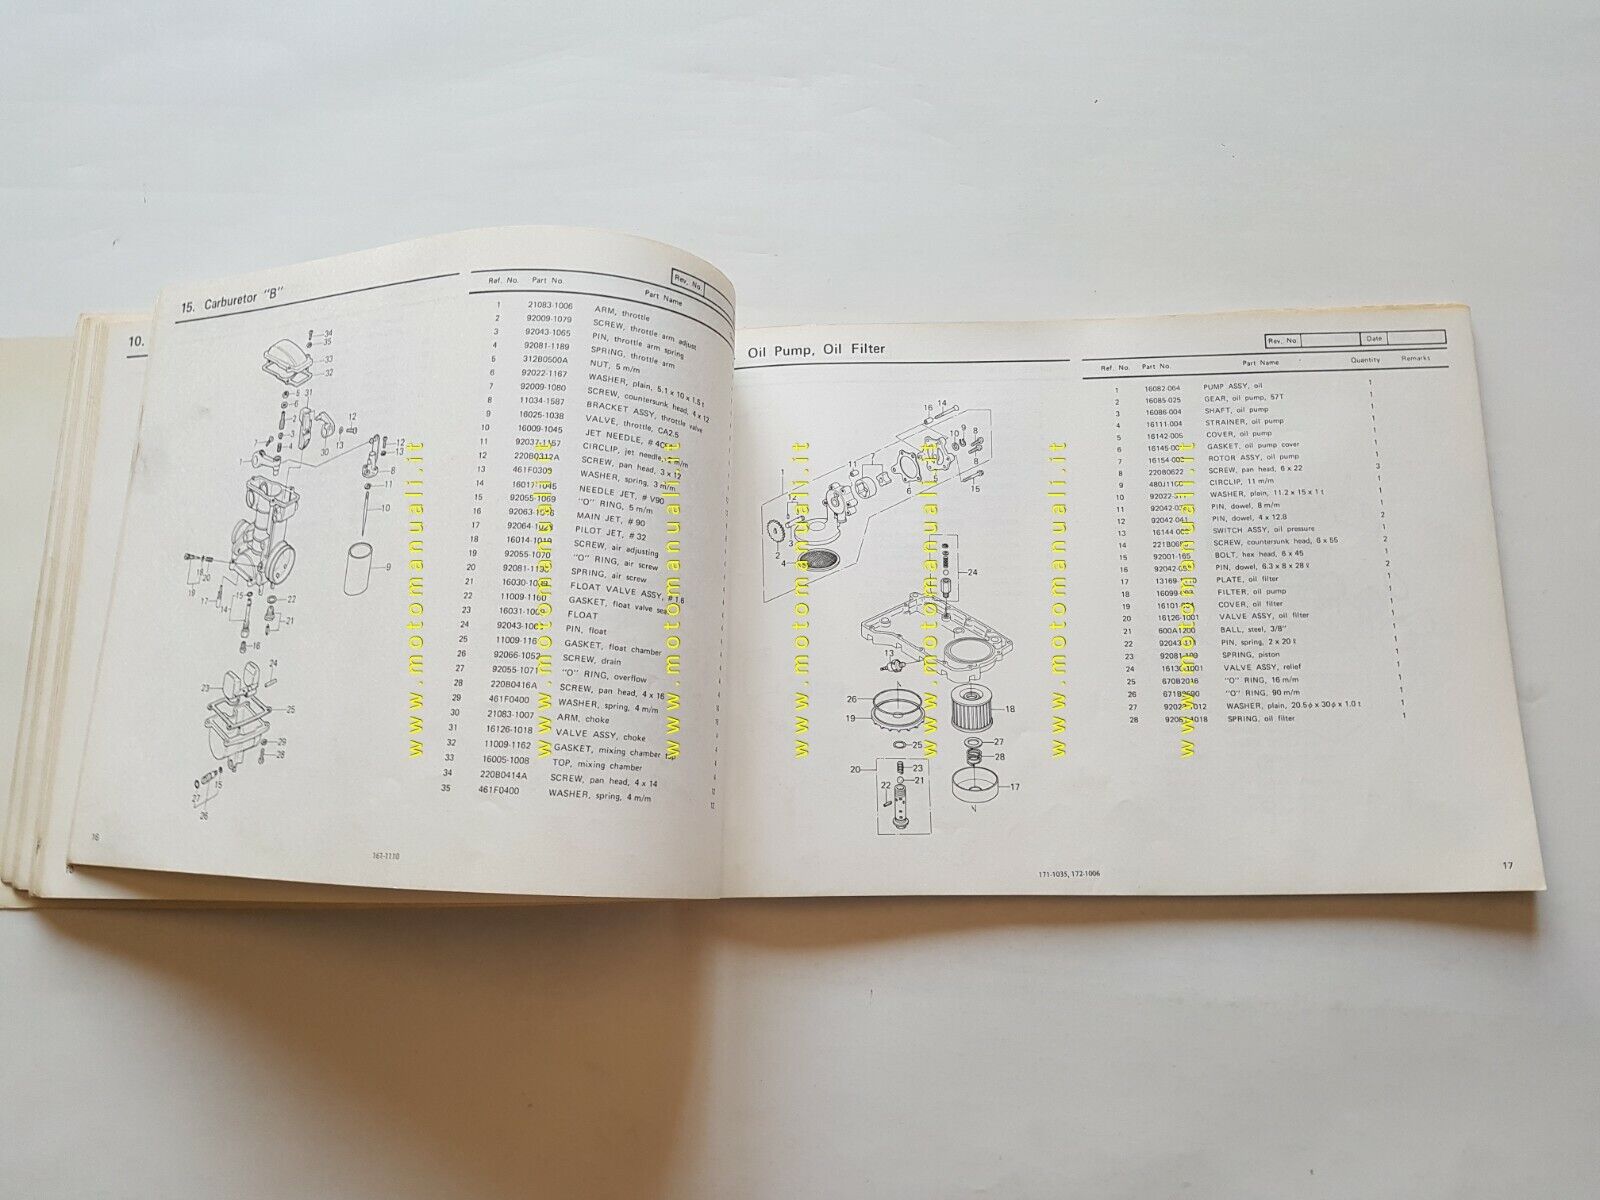 10.
15. Carburetor "B"
Rev. No.
Ref. No. Part No. Part Name
1 21083-1006 ARM, throttle
2 92009-1079 SCREW, throttle arm adjust
3 92043-1065 PIN, throttle arm spring
4 92081-1189 SPRING, throttle arm
5 312B0500A NUT, 5 m/m
6 92022-1167 WASHER, plain, 5.1 x 10 x 1.5 t
7 92009-1080 SCREW, countersunk head, 4 x 12
8 11034-1587 BRACKET ASSY, throttle valve
9 16025-1038 VALVE, throttle, CA2.5
10 16009-1045 JET NEEDLE,
11 92037-1157 CIRCLIP, jet needle,
12 220B0312A SCREW, pan head, 3 x 12
13 461F0300 WASHER, spring, 3 m/m
14 16017-1045 NEEDLE JET, # V90
15 92055-1069 "O" RING, 5 m/m
16 MAIN JET, # 90
17 PILOT JET, # 32
18 SCREW, air adjusting
19 92055-1070 "O" RING, air screw
20 SPRING, air screw
21 FLOAT VALVE ASSY,
22 11009-1160 GASKET, float valve seat
23 FLOAT
24 PIN, float
25 GASKET, float chamber
26 92066-1052 SCREW, drain
27 92055-1071 "O" RING, overflow
28 220B0416A SCREW, pan head, 4 x 16
29 461F0400 WASHER, spring, 4 m/m
30 21083-1007 ARM, choke
31 16126-1018 VALVE ASSY, choke
32 11009-1162 GASKET, mixing chamber top
33 16005-1008 TOP, mixing chamber
34 220B0414A SCREW, pan head, 4 x 14
35 461F0400 WASHER, spring, 4 m/m
16
161-1110
Oil Pump, Oil Filter
Rev. No. Date
Ref. No. Part No. Part Name Quantity Remarks
1 16082-064 PUMP ASSY, oil 1
2 16085-025 GEAR, oil pump, 57T 1
3 16086-004 SHAFT, oil pump 1
4 16111-004 STRAINER, oil pump 1
5 16142-005 COVER, oil pump 1
6 GASKET, oil pump cover 1
7 ROTOR ASSY, oil pump 1
8 220B0622 SCREW, pan head, 6 x 22 3
9 CIRCLIP, 11 m/m 1
10 WASHER, plain, 11.2 x 15 x 1 t 1
11 PIN, dowel, 8 m/m 1
12 PIN, dowel, 4 x 12.8 2
13 SWITCH ASSY, oil pressure 1
14 SCREW, countersunk head, 6 x 55 2
15 92001-165 BOLT, hex head, 6 x 45 1
16 PIN, dowel, 6.3 x 8 x 28 ℓ 2
17 PLATE, oil filter 1
18 FILTER, oil pump 1
19 COVER, oil filter 1
20 16126-1001 VALVE ASSY, oil filter 1
21 600A1200 BALL, steel, 3/8" 1
22 PIN, spring, 2 x 20 ℓ 1
23 SPRING, piston 1
24 VALVE ASSY, relief 1
25 670B2016 "O" RING, 16 m/m 1
26 "O" RING, 90 m/m 1
27 WASHER, plain, 20.5φ x 30φ x 1.0 t 1
28 SPRING, oil filter 1
171-1035, 172-1006
17
www.motomanuali.it
www.motomanuali.it
www.motomanuali.it
www.motomanuali.it
www.motomanuali.it
www.motomanuali.it
www.motomanuali.it